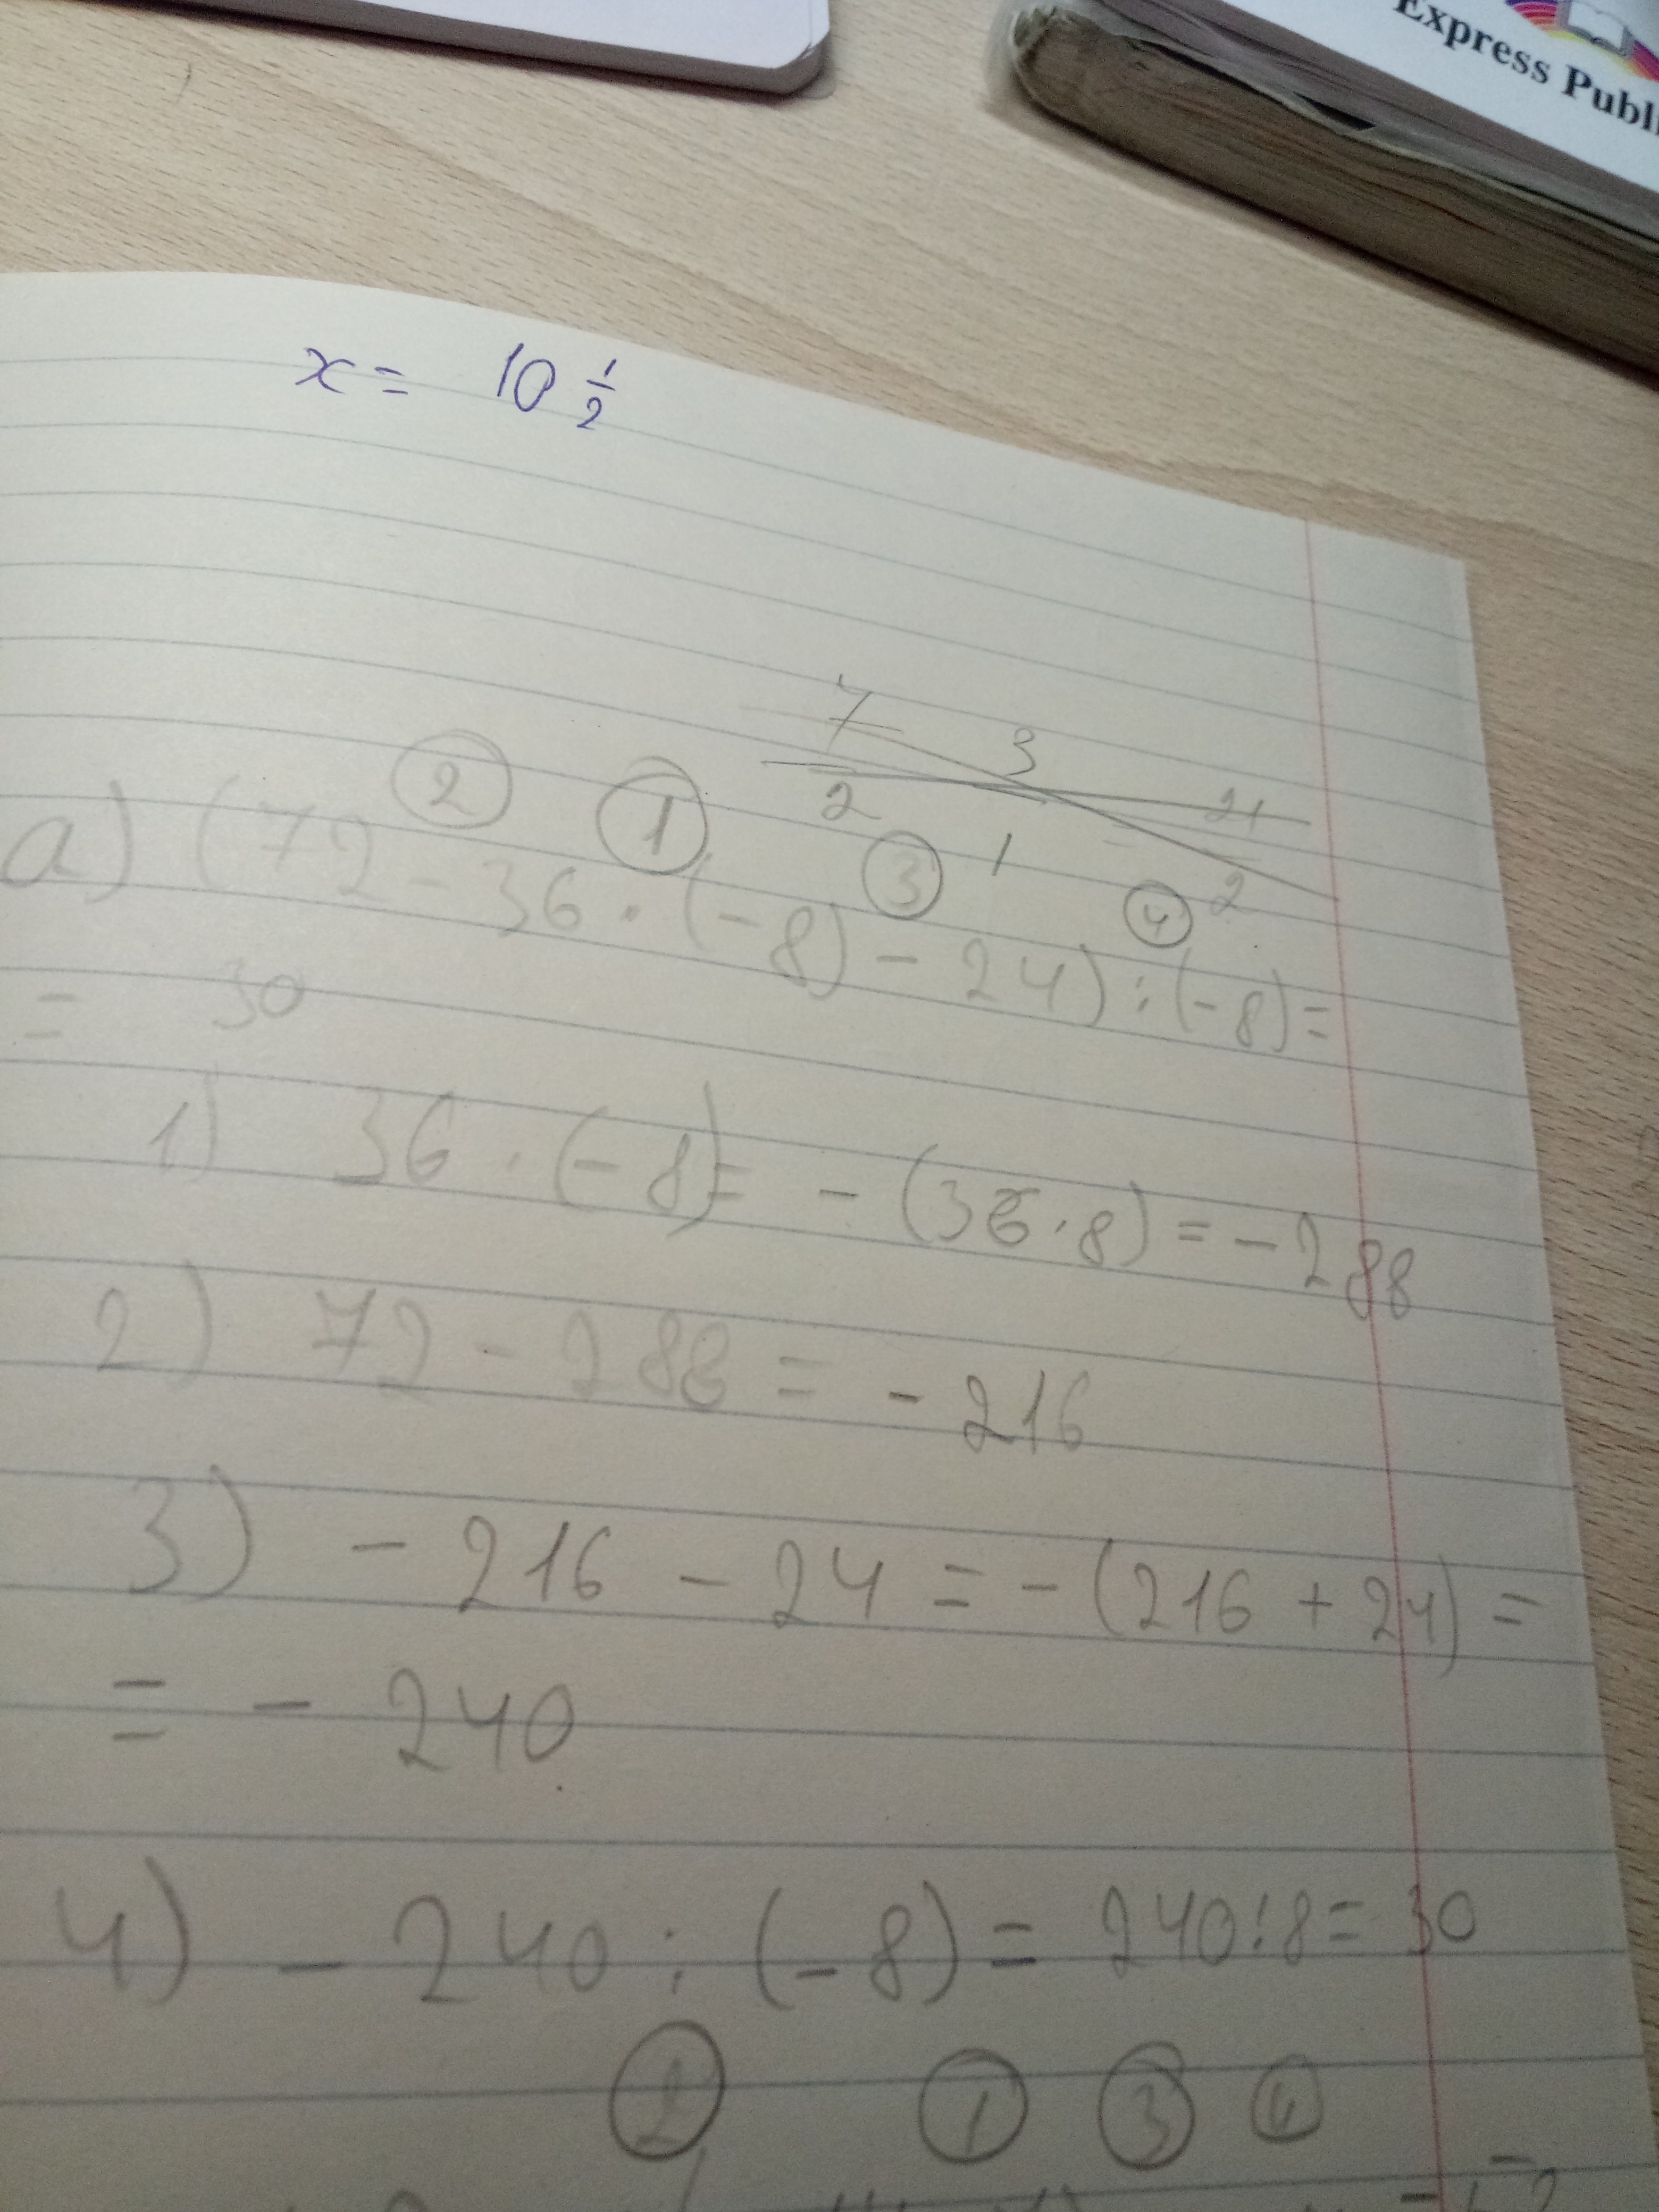 Express Publi
x = 10 1/2
7 3 21
2 1 2
② ① ③ ④
а) (72 - 36 · (-8) - 24) : (-8) =
= 30
1) 36 · (-8) = - (36 · 8) = - 288
2) 72 - 288 = - 216
3) - 216 - 24 = - (216 + 24) =
= - 240
4) - 240 : (-8) = 240 : 8 = 30
② ① ③ ④